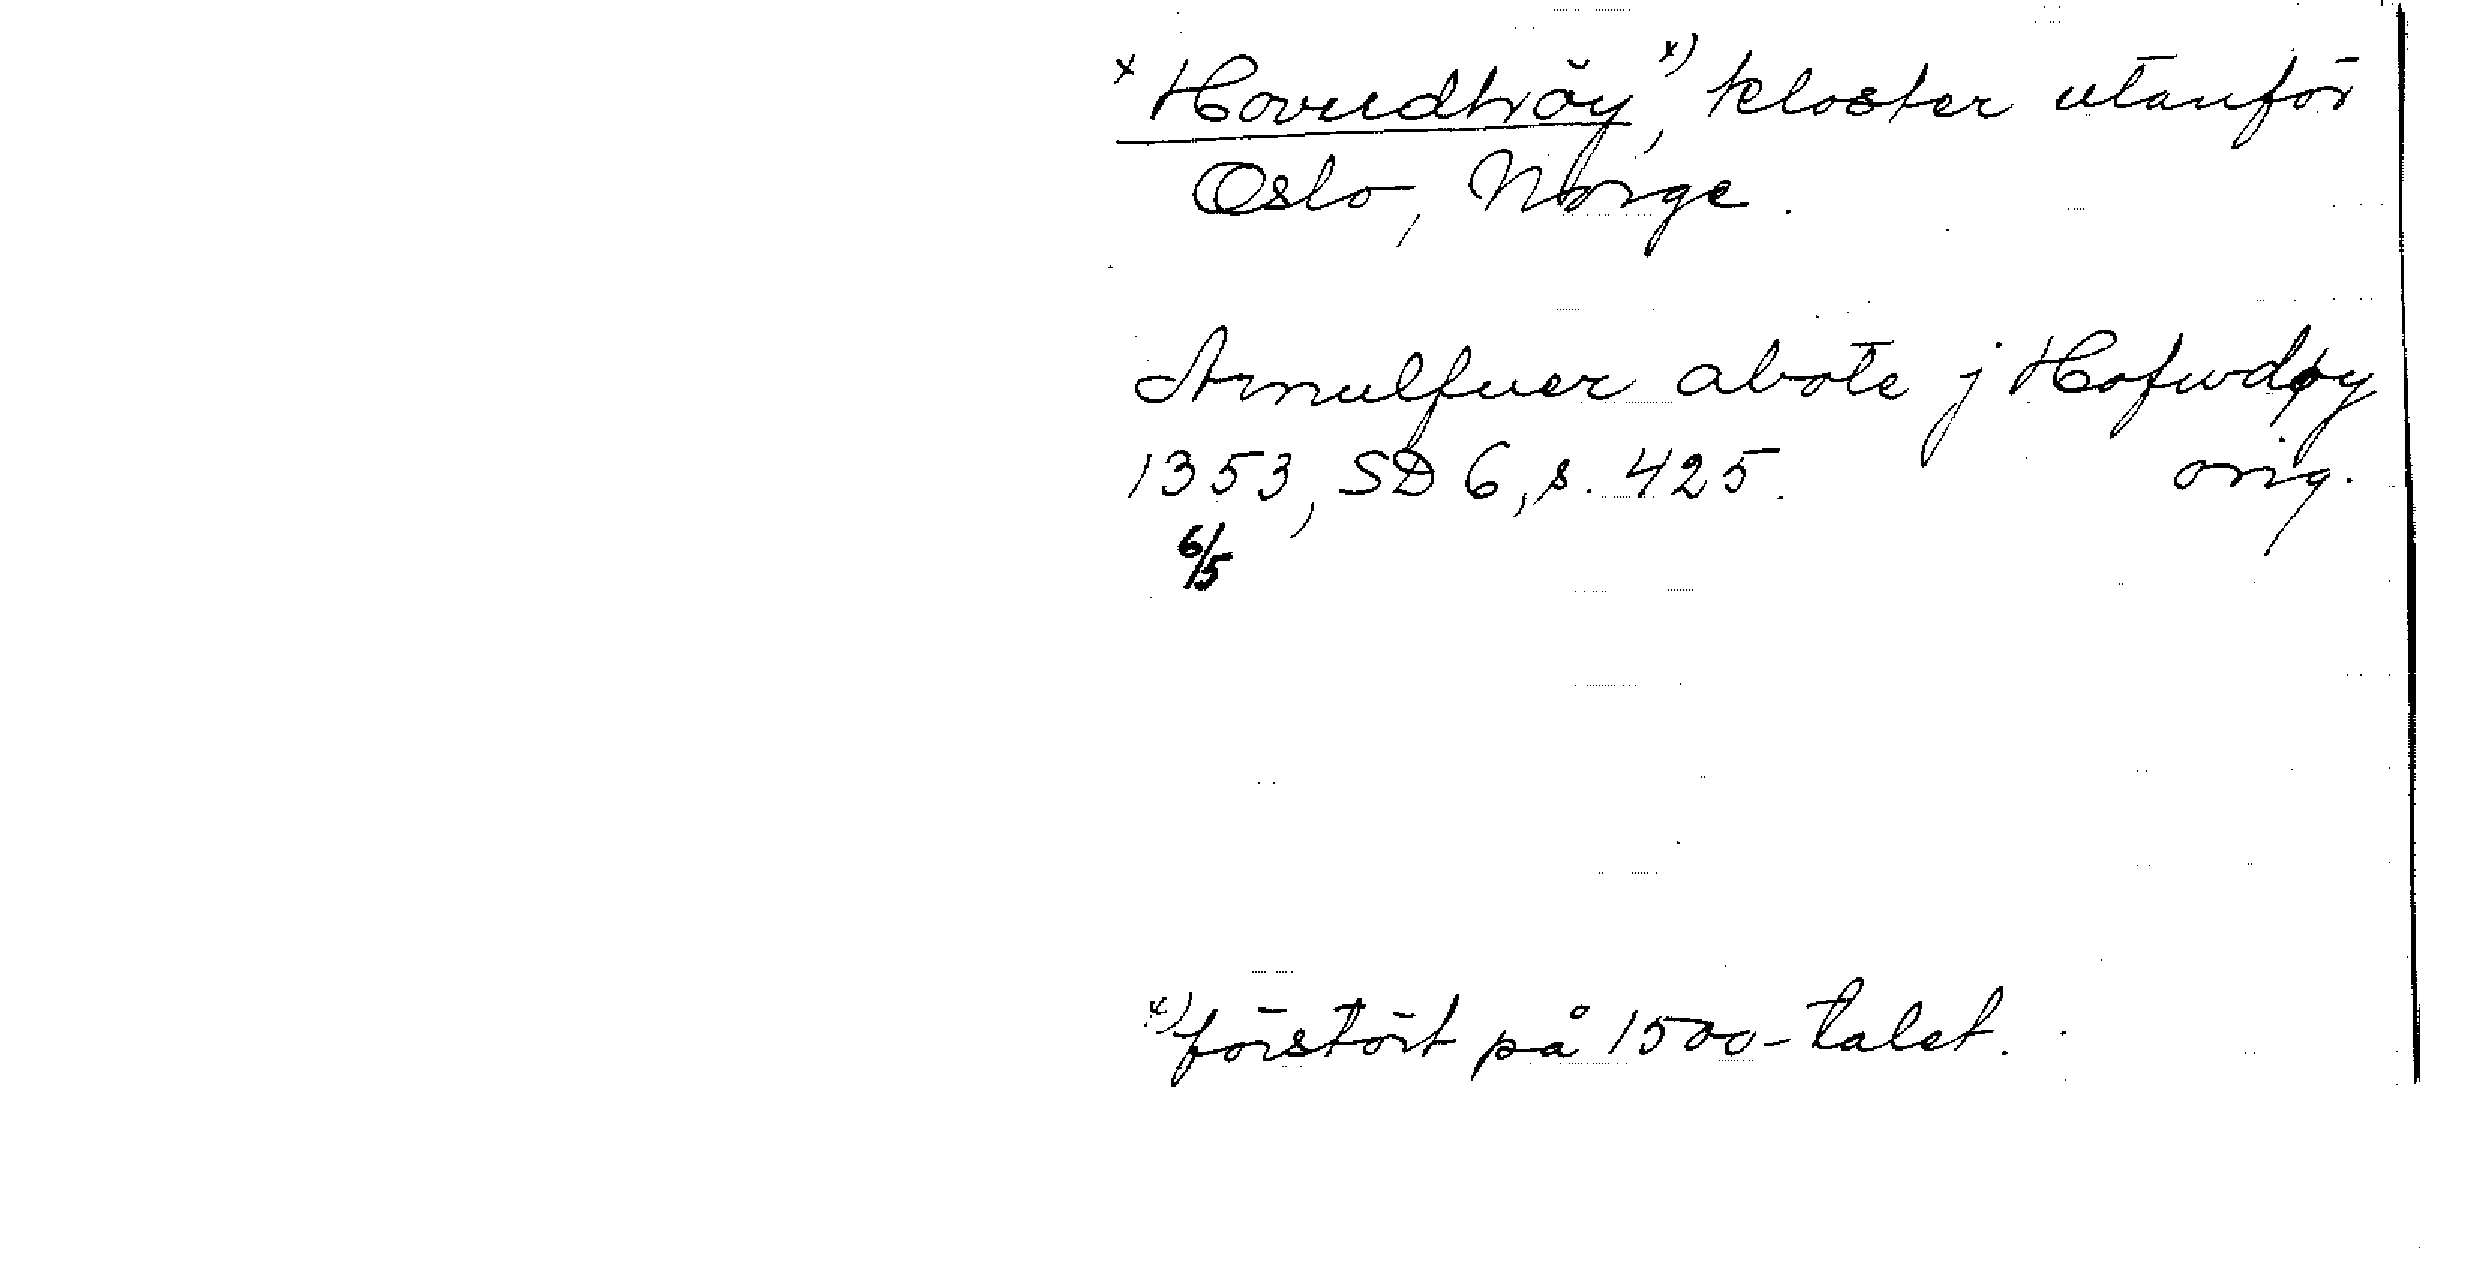 x Hovudhöy x), kloster utanför
Oslo, Norge.
Arnulfuer abote j Hofwdøy
1353, SD 6, s. 425. orig.
6/5
x) förstört på 1500-talet.